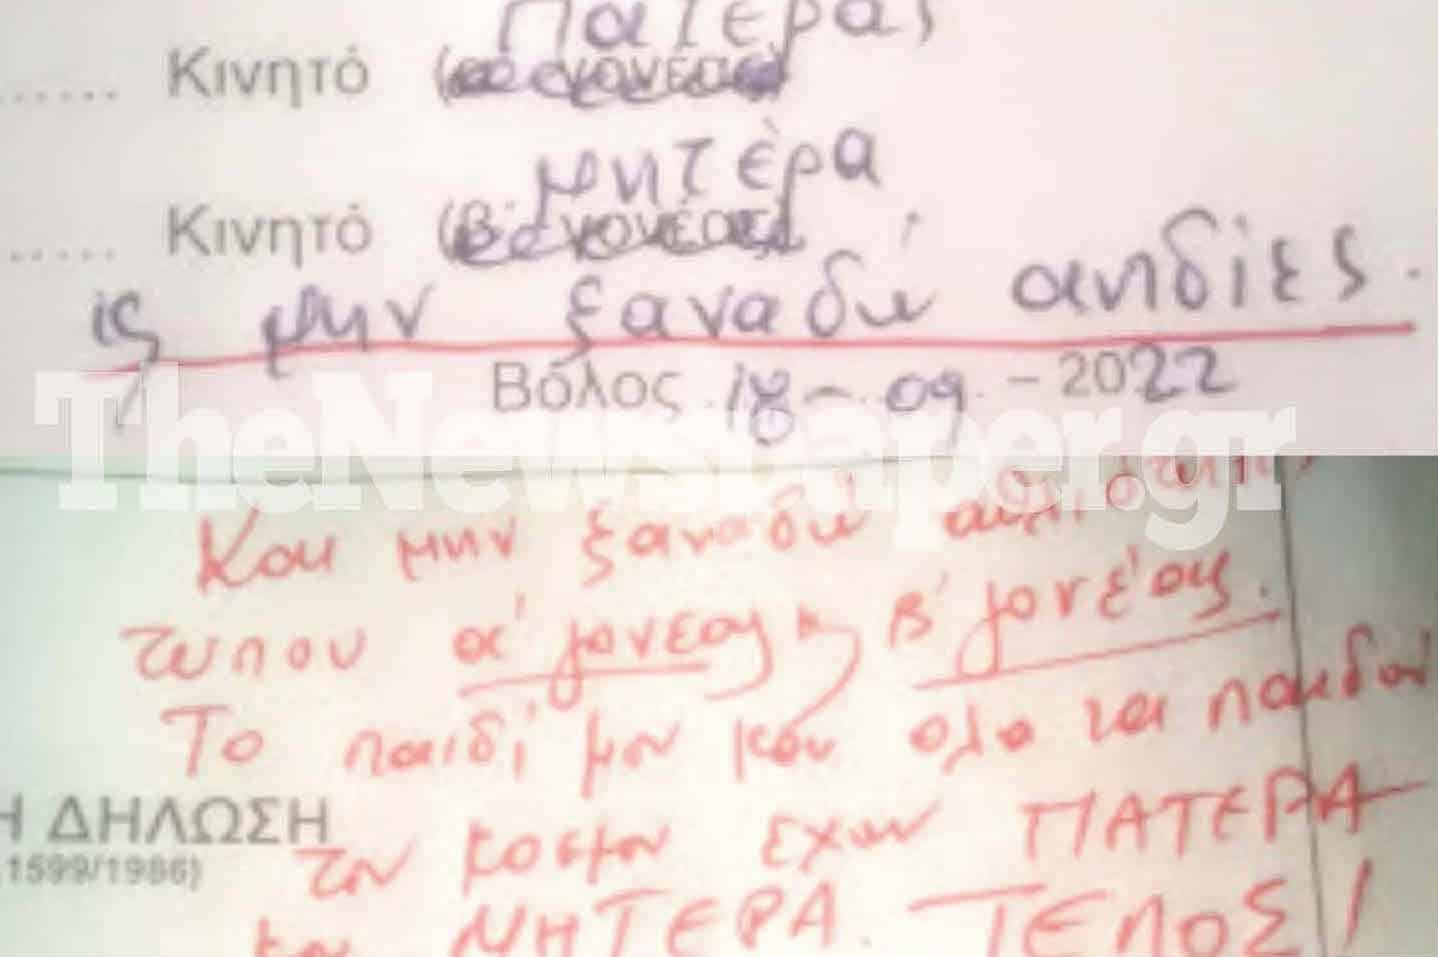 Πατέρας
...... Κινητό (α' γονέας)
μητέρα
..... Κινητό (β' γονέας)
ις μην ξαναδώ αηδίες.
Βόλος 18-09-2022
TheNewspaper.gr
Και μην ξαναδώ αθλιότητες
τύπου α' γονέας κ β' γονέας.
Το παιδί μου και όλα τα παιδιά
Η ΔΗΛΩΣΗ
του κόσμου έχουν ΠΑΤΕΡΑ
1599/1986)
και ΜΗΤΕΡΑ. ΤΕΛΟΣ!